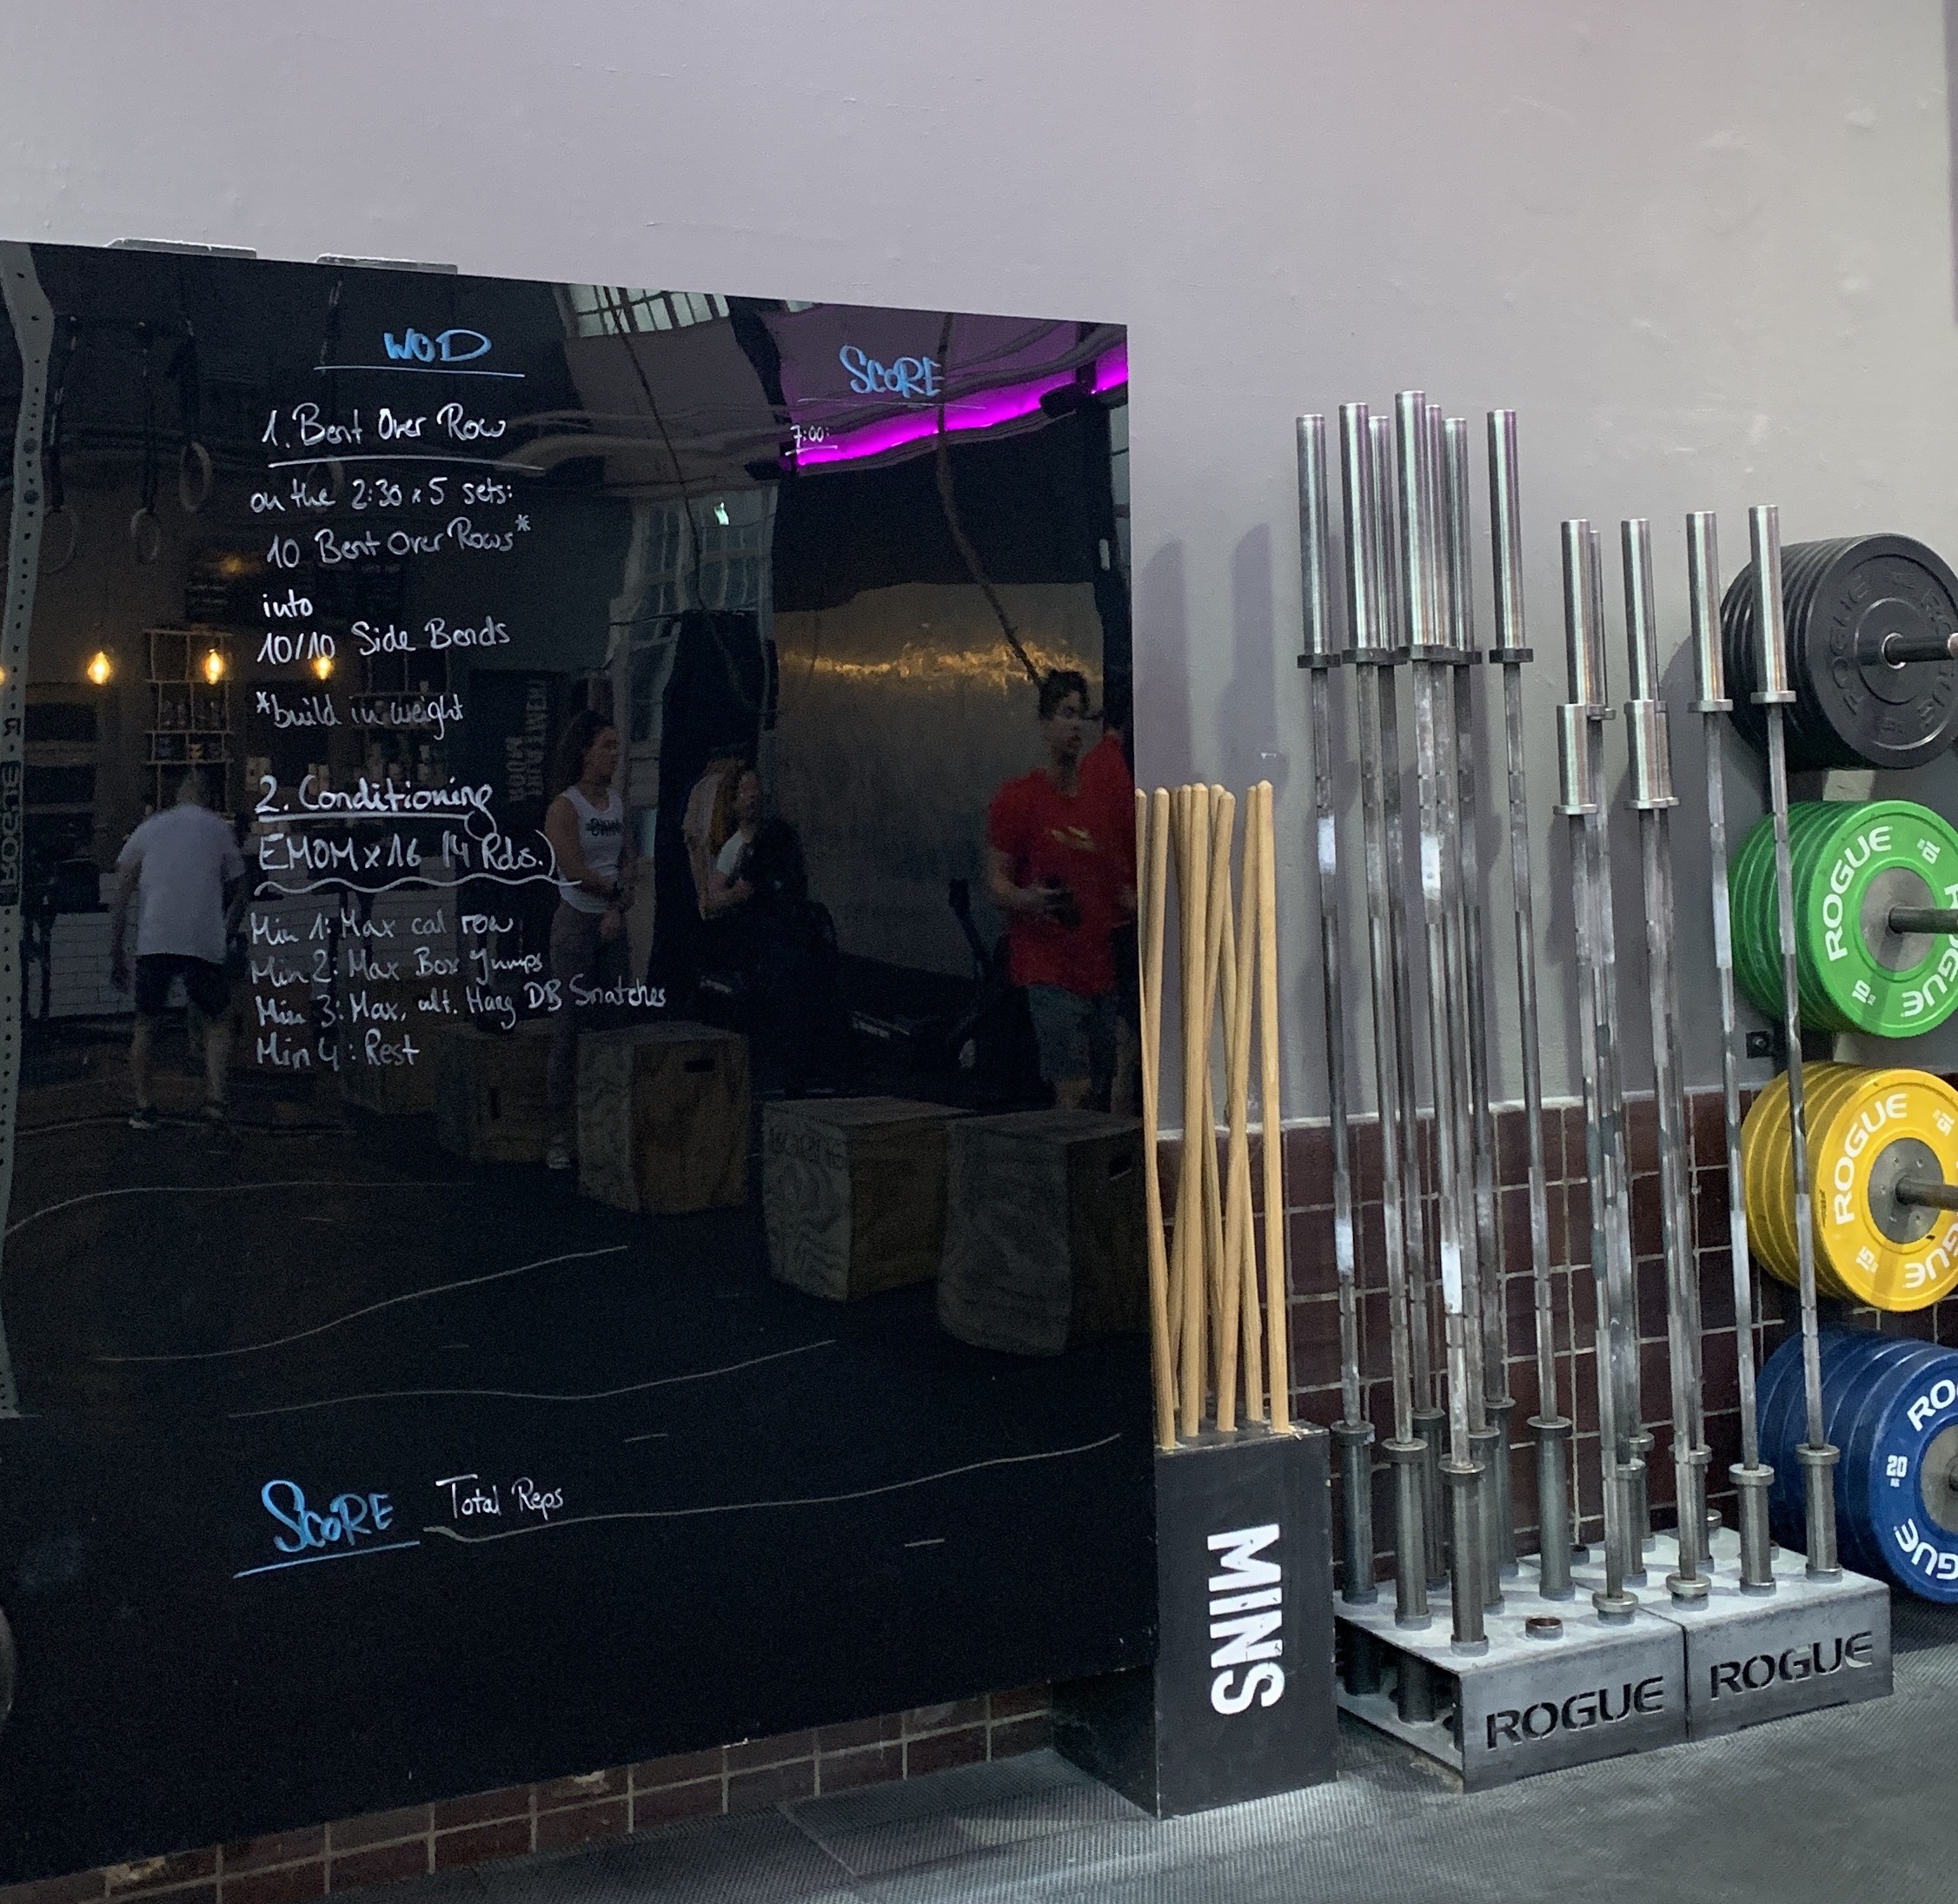 WOD
1. Bent Over Row
on the 2:30 x 5 sets:
10 Bent Over Rows*
into
10/10 Side Bends
*build in weight
2. Conditioning
EMOM x 16 (4 Rds.)
Min 1: Max cal row
Min 2: Max Box Jumps
Min 3: Max. alt. Hang DB Snatches
Min 4: Rest
SCORE Total Reps
SCORE
7:00:
MINS
ROGUE
ROGUE
ROGUE
ROGUE
10
ROGUE
15
20